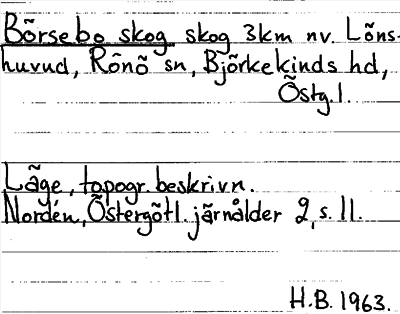 Börsebo skog skog 3km nv. Löns-
huvud, Rönö sn, Björkekinds hd,
Östg.l.
Läge, topogr. beskrivn.
Nordén, Östergötl. järnålder 2, s. 11.
H.B. 1963.